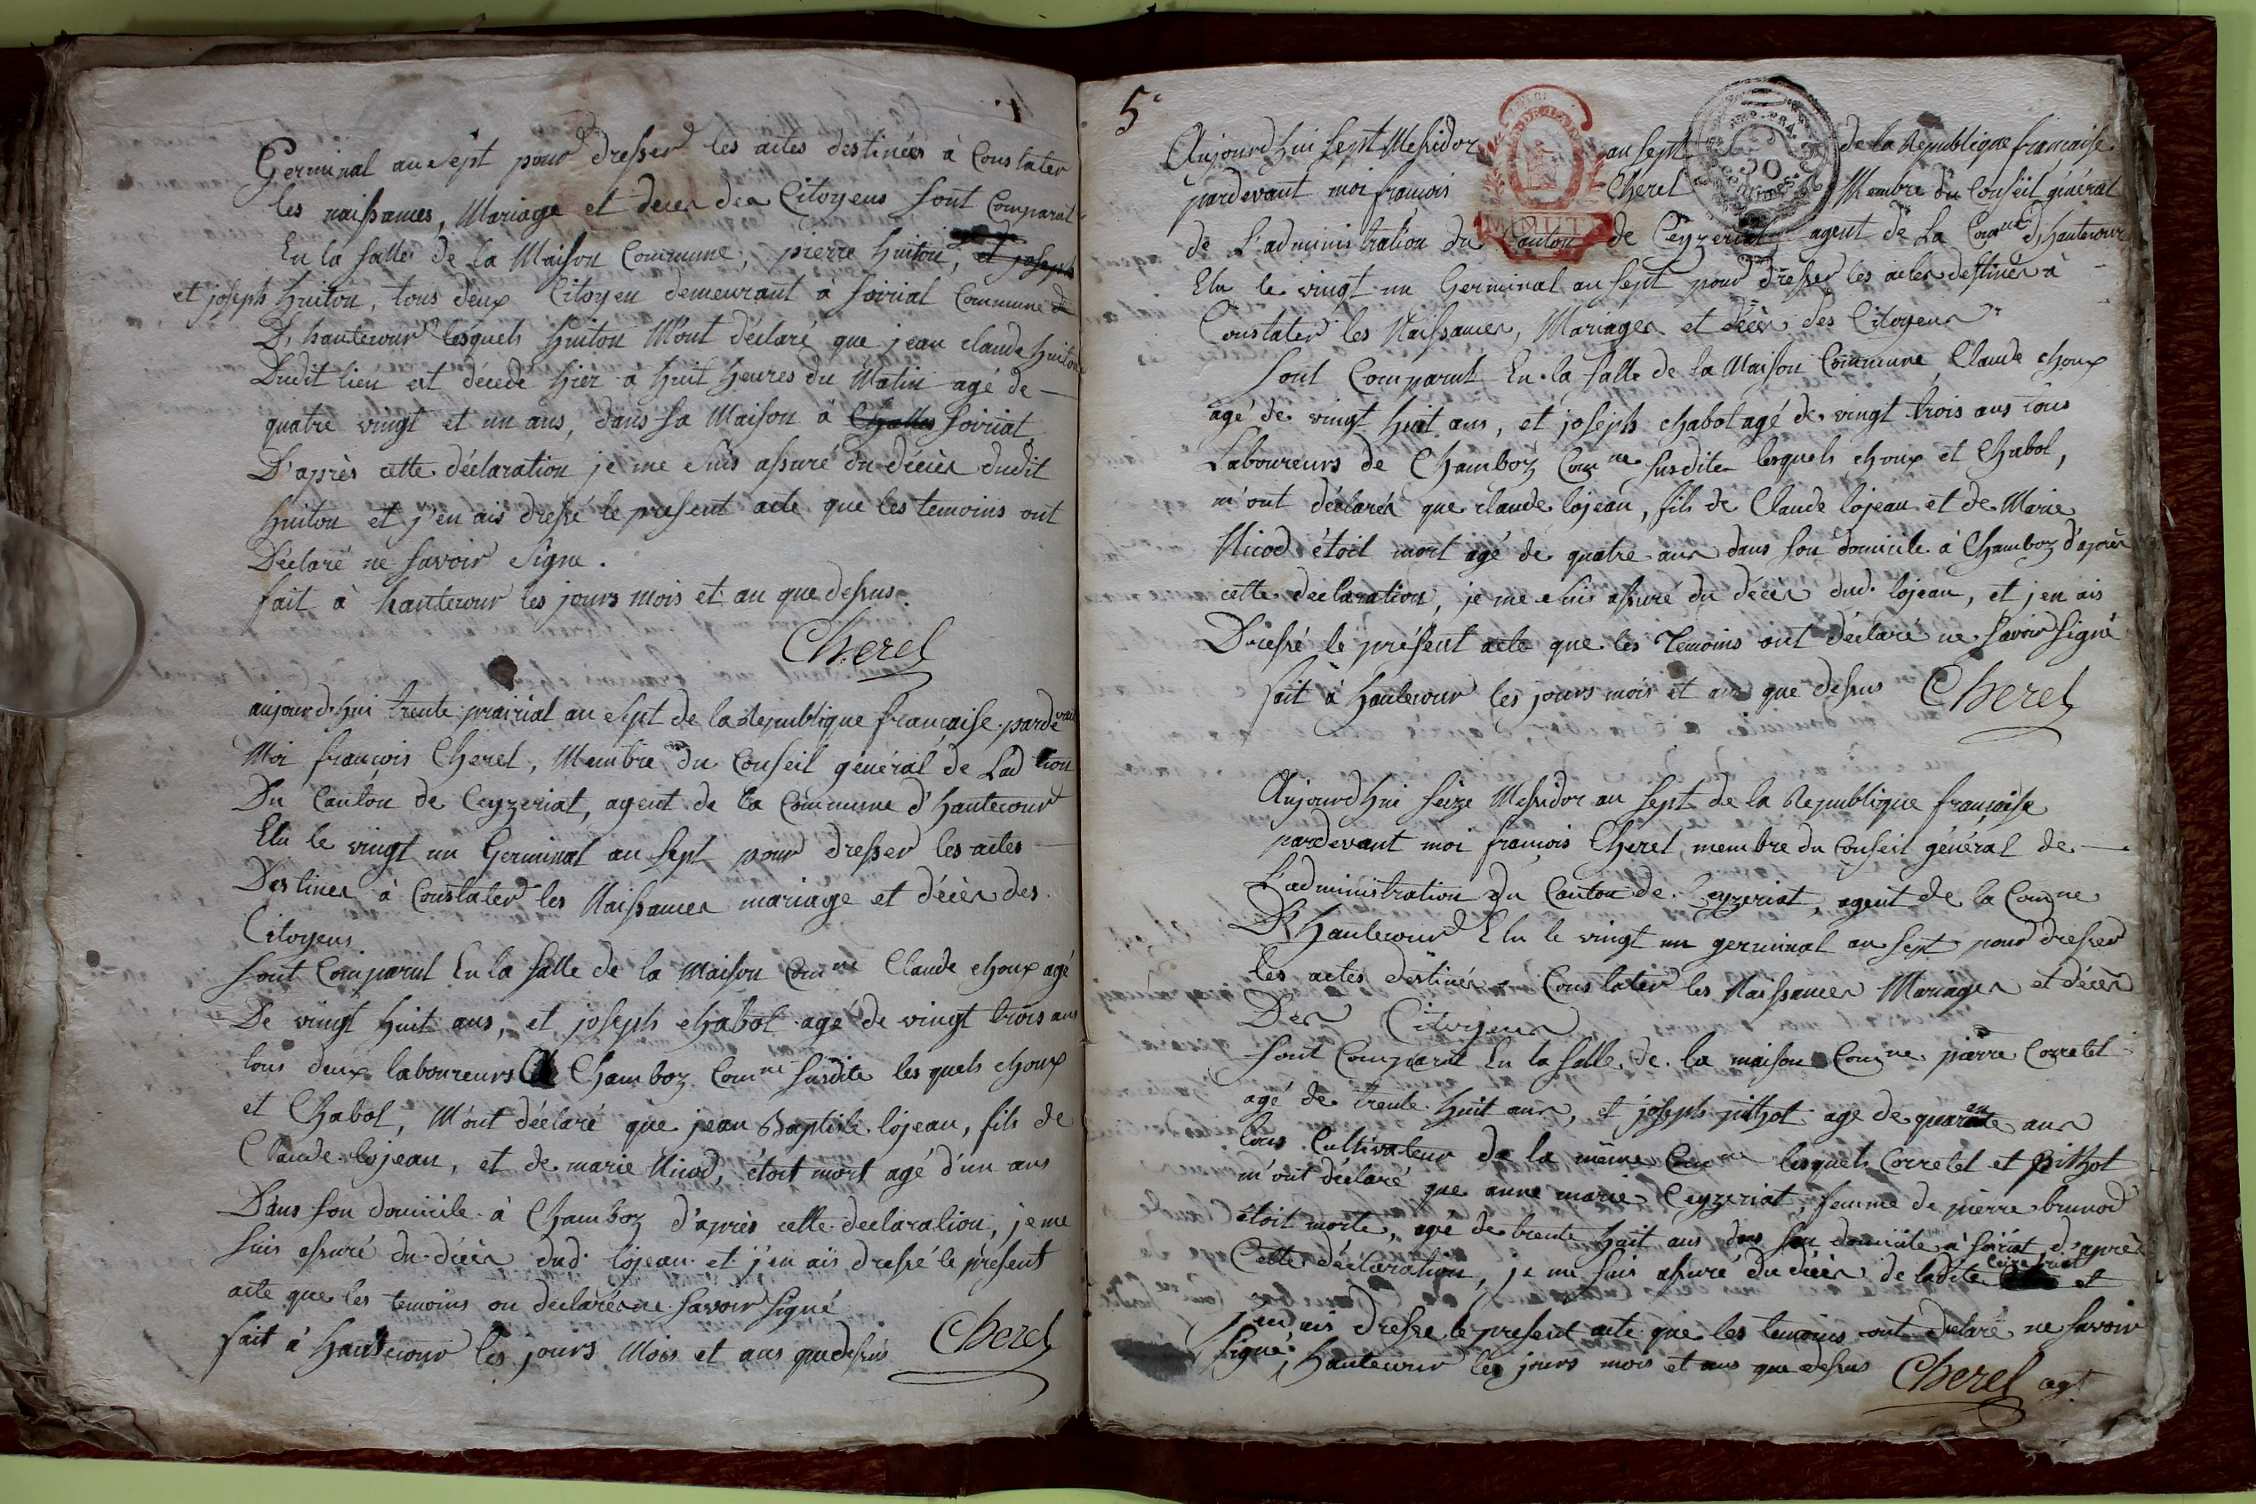 Germinal an sept pour dresser les actes destinées à Constater
les naissances, Mariage et deces des Citoyens Sont Comparut
En la salle de la Maison Commune, pierre huiton, et joseph
et joseph huiton, tous deux Citoyen demeurant à Soiriat Commune de
D'hautecour lesquels huiton M'ont déclaré que jean claude huiton
Dudit lieu est décedé hier a huit heures du Matin agé de
quatre vingt et un ans, dans sa Maison à Challes Soiriat
D'après cette déclaration je me suis assuré du décès dudit
huiton et j'en ais dressé le present acte que les temoins ont
Déclaré ne savoir Signe.
fait à hautecour les jours mois et an que dessus.
Cherel
aujourd'hui trente prairial an sept de la Republique francaise pardevant
Moi francois Cherel, Membre du Conseil général de Lad tion
Du Canton de Ceyzeriat, agent de la Commune d'hautecour
Elu le vingt un Germinal an Sept pour dresser les actes
Destines à Constater les Naissances mariage et décès des
Citoyens
Sont Comparut En la salle de la Maison Comne Claude choux agé
De vingt huit ans, et joseph chabot agé de vingt trois ans
tous deux laboureurs Chamboz Comne Susdite les quels choux
et Chabot, M'ont déclaré que jean Baptiste lojean, fils de
Claude lojean, et de marie Nicod, étoit mort agé d'un ans
Dans son domicile à Chamboz d'après cette declaration, je me
suis assuré du décès dud. lojean et j'en ais dressé le présent
acte que les temoins on declarés ne Savoir Signé
fait à Hautecour les jours Mois et ans que dessus
Cherel
5e
Aujourd'hui Sept Messidor an sept de la Republique francaise
pardevant moi francois Cherel Membre du Conseil général
de L'administration du Canton de Ceyzeriat agent de La Comne d'hautecour
Elu le vingt un Germinal an sept pour dresser les actes destinés à
Constater les Naissances, Mariages et décès des Citoyens
Sont Comparut En la salle de la Maison Commune, Claude choux
agé de vingt huit ans, et joseph chabot agé de vingt trois ans tous
Laboureurs de Chamboz Comne Susdite lesquels choux et Chabot,
m'ont déclarés que claude lojean, fils de Claude lojean et de Marie
Nicod étoit mort agé de quatre ans dans son domicile à Chamboz d'après
cette declaration, je me suis assuré du décès dud. lojean, et j'en ais
Dressé le présent acte que les Temoins ont déclaré ne Savoir Signé
fait à Hautecour les jours mois et ans que dessus Cherel
Aujourd'hui Seize Messidor an Sept de la Republique francoise
pardevant moi francois Cherel, membre du Conseil général de
L'administration du Canton de Ceyzeriat, agent de la Comne
D'Hautecour Elu le vingt un germinal an sept pour dresser
les actes destinés Constater les Naissances Mariages et décès
Des Citoyens
Sont Comparut En la Salle de la maison Comne pierre Corretel
agé de trente huit ans, et joseph pithot age de quarante ans
tous Cultivateur de la même Comne lesquels Corretel et Pithot
m'ont déclaré que anne marie Ceyzeriat, femme de pierre brunod
étoit morte, age de trente huit ans dans son domicile à Soiriat d'après
Cette déclaration, je me suis assuré du décès de ladite Ceizeriat et
j'en ais dressé le present acte que les temoins ont declaré ne savoir
Signé, Hautecour les jours mois et ans que dessus
Cherel agt